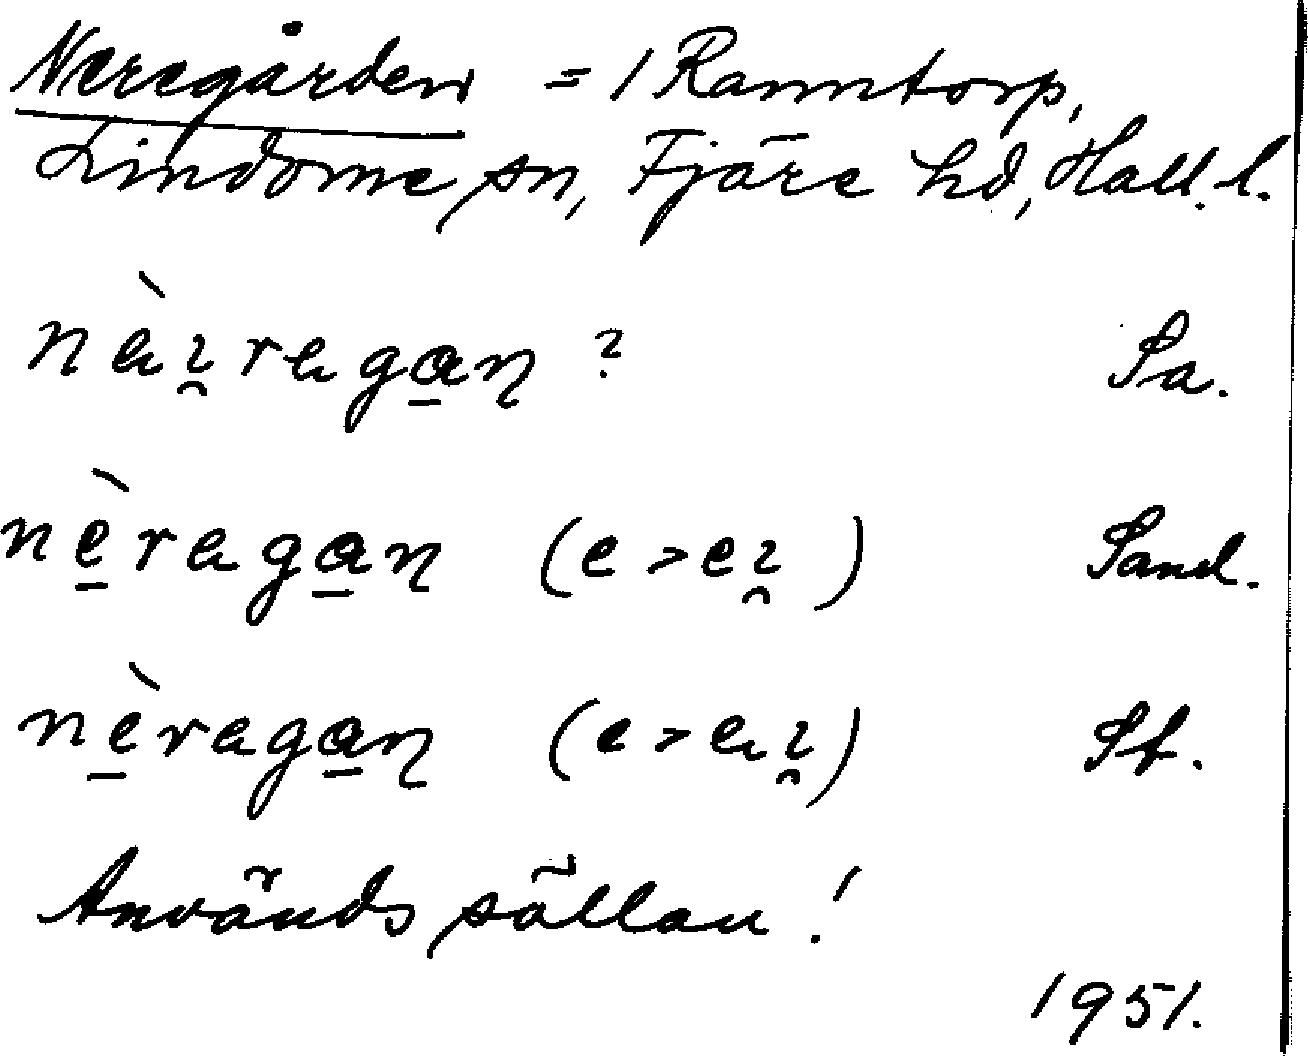 Neregården = 1 Ramntorp,
Lindome sn, Fjäre hd, Hall. l.
nèı̯ragan ? Sa.
nèragan (e > eı̯) Sand.
nèragan (e > eı̯) St.
Används sällan!
1951.